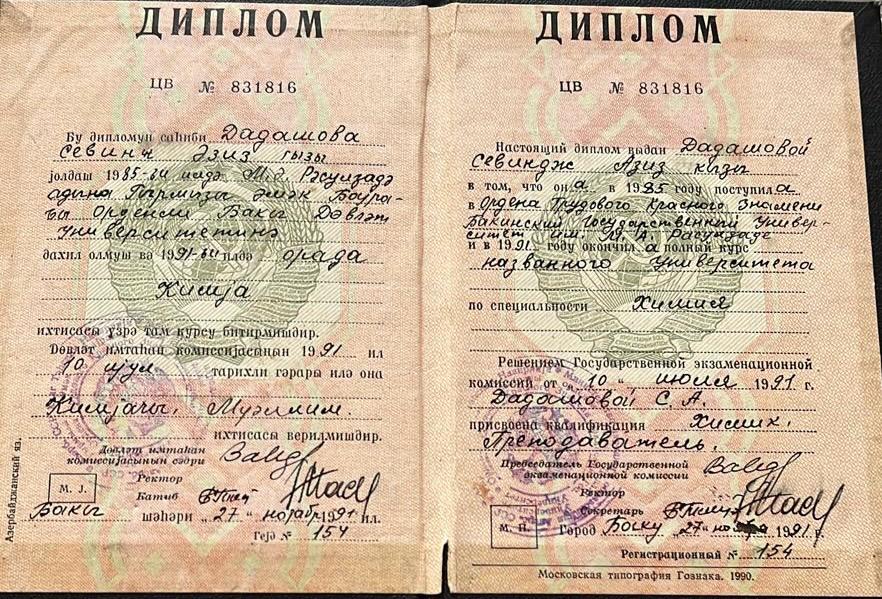 ДИПЛОМ
ЦВ № 831816
Бу дипломун саһиби Дадашова
Севинҹ Әзиз гызы
јолдаш 1985-ҹи илдә М.Ә. Рәсулзадә
адына Гырмызы Әмәк Бајра-
ғы Орденли Бакы Дөвләт
Университетинә
дахил олмуш вә 1991-ҹи илдә орада
Кимја
ихтисасы үзрә там курсу битирмишдир.
Дөвләт имтаһан комиссијасынын 1991 ил
10 ијул тарихли гәрары илә она
Кимјачы, Мүәллим.
ихтисасы верилмишдир.
Дөвләт имтаһан
комиссијасынын сәдри
Ректор
М. Ј.
Катиб
Бакы шәһәри „27" нојабр 1991 ил.
Гејд № 154
Азербайджанский яз.
ДИПЛОМ
ЦВ № 831816
Настоящий диплом выдан Дадашовой
Севиндж Азиз кызы
в том, что она в 1985 году поступила
в Ордена Трудового Красного Знамени
Бакинский Государственный Универ-
ситет им. М.А. Расулзаде
и в 1991 году окончила полный курс
названного университета
по специальности Химия
Решением Государственной экзаменационной
комиссии от „10" июля 1991 г.
Дадашовой С. А.
присвоена квалификация Химик.
Преподаватель.
Председатель Государственной
экзаменационной комиссии
Ректор
Секретарь
М. П.
Город Баку „27" ноября 1991 г.
Регистрационный № 154
Московская типография Гознака. 1990.